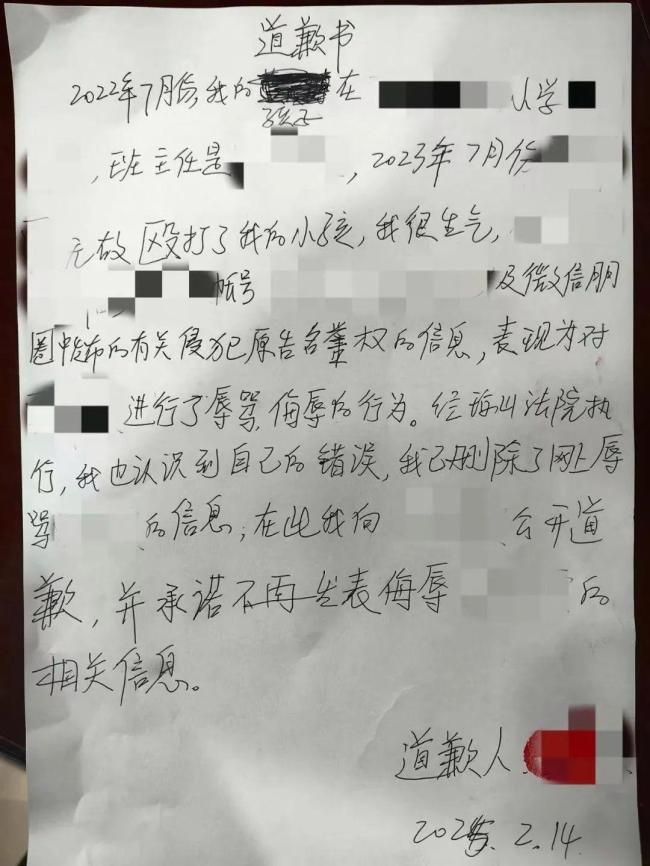 道歉书
2022年7月份,我的在小学
孩子
,班主任是,2023年7月份
无故殴打了我的小孩,我很生气,
帐号及微信朋
圈中发布的有关侵犯原告名誉权的信息,表现为对
进行了辱骂,侮辱的行为。经梅山法院执
行,我也认识到自己的错误,我已删除了网上辱
骂的信息,在此我向公开道
歉,并承诺不再发表侮辱的
相关信息。
道歉人
2025.2.14